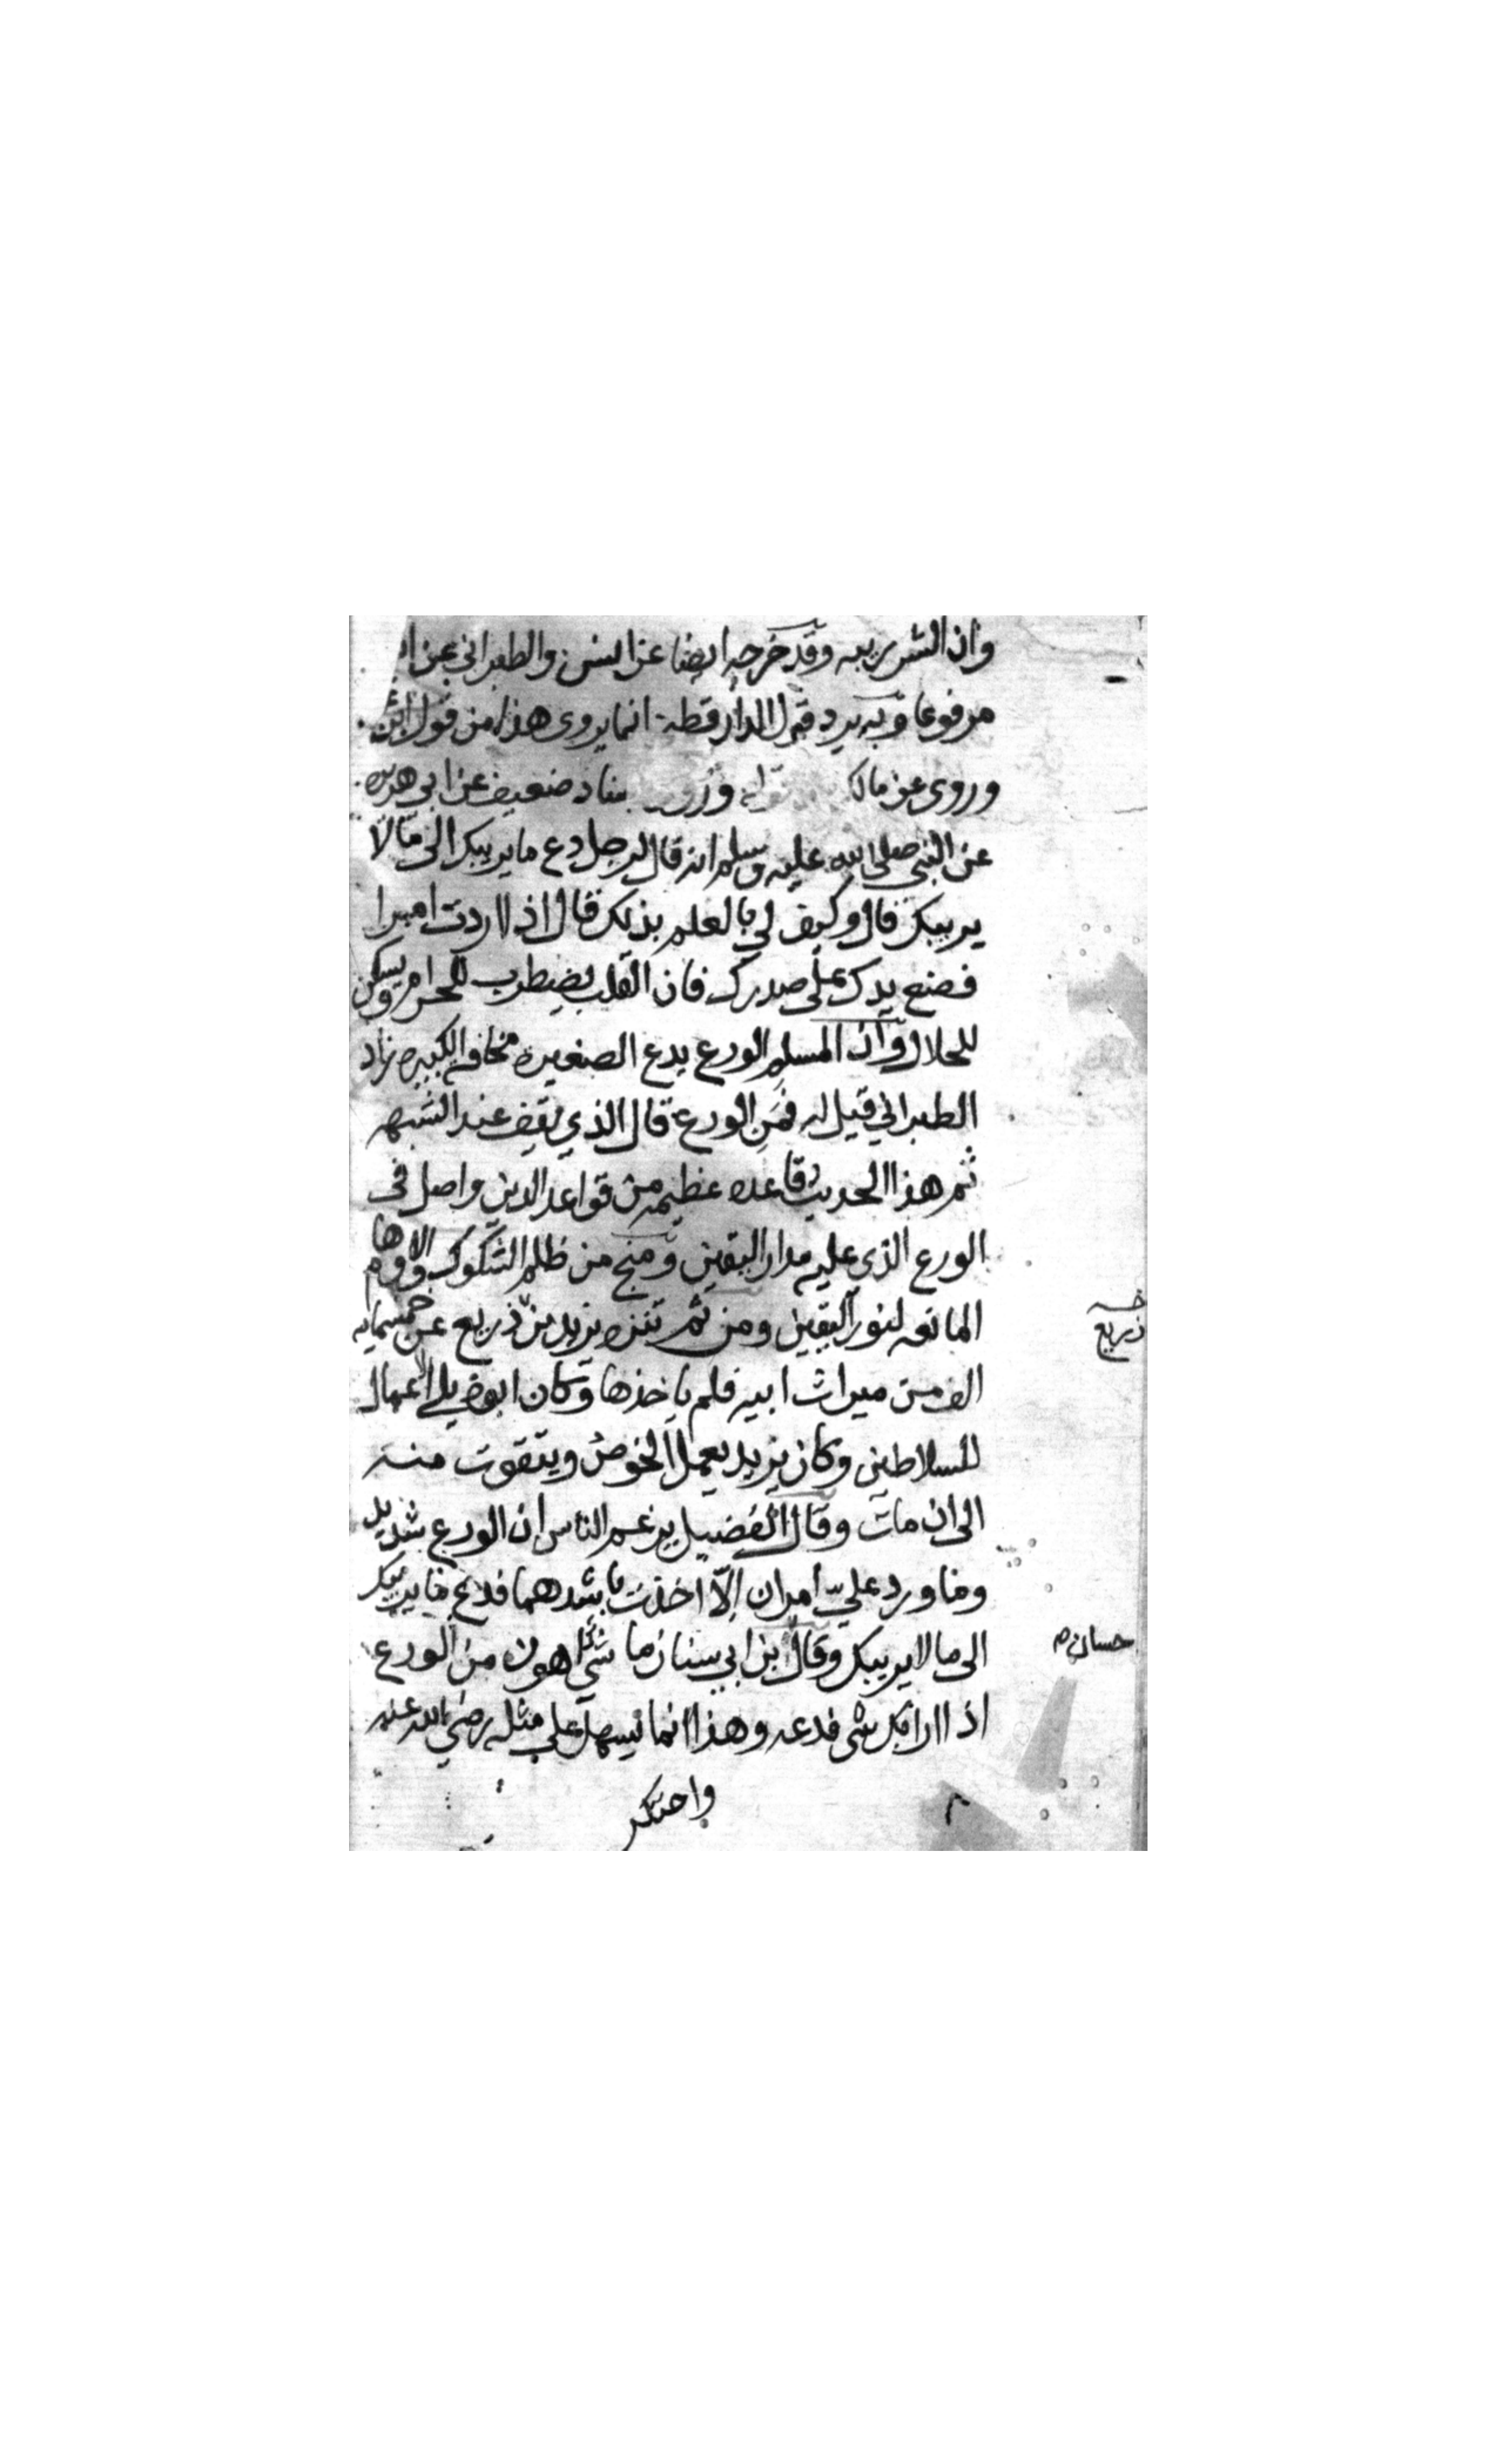 وان الشر ريبه وقد خرجه ايضا عن انس والطبراني عن
مرفوعا وبه يرد قول الدارقطني انما يروى هذا من قول ابن
وروى عن مالك بناد ضعيف عن ابي هريره
عن النبي صلى الله عليه وسلم انه قال لرجل دع ما يريبك الى ما لا
يريبك قال وكيف لي بالعلم بذلك قال اذا اردت امرا
فضع يدك على صدرك فان القلب يضطرب للحرام ويسكن
للحلال وان المسلم الورع يدع الصغيرة مخافة الكبيره زاد
الطبراني قيل له فمن الورع قال الذي يقف عند الشبهه
ثم هذا الحديث قاعده عظيمه من قواعد الدين واصل في
الورع الذي عليه مدار اليقين ومنج من ظلم الشكوك والاوهام
المانعه لنور اليقين ومن ثم تنزه يزيد بن ذريع عن خمسمايه
الف من ميراث ابيه فلم ياخذها وكان ابوه يلي الاعمال
للسلاطين وكان يزيد يعمل الخوص ويتقوت منه
الى ان مات وقال الفضيل يزعم الناس ان الورع شديد
وما ورد علي امران الا اخذت باشدهما فدع ما يريبك
الى ما لا يريبك وقال بن ابي سنان ما شي اهون من الورع
اذا رابك شي فدعه وهذا انما يسهل على مثله رضي الله عنه
واحتكر
ذريع
حسان